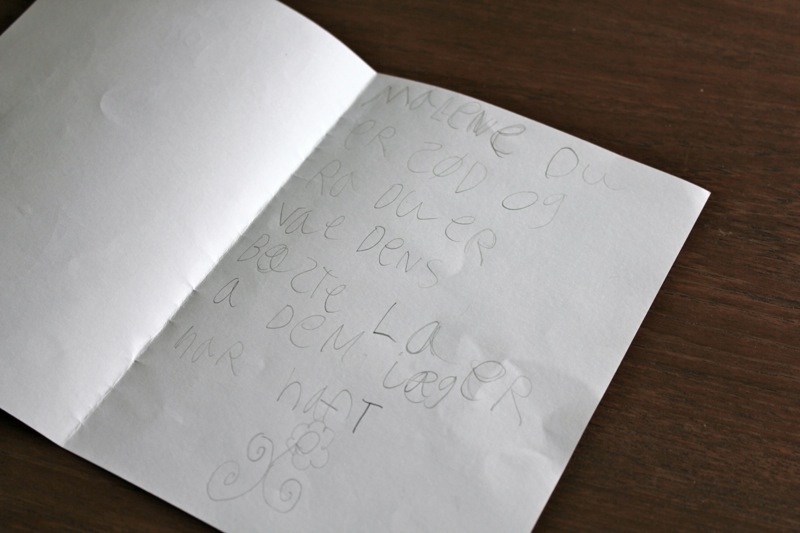 MaLENE Du
ER SØD og
RA Du ER
Vae DENS
BEZTE LaER
a DEM iægER
haR haFT